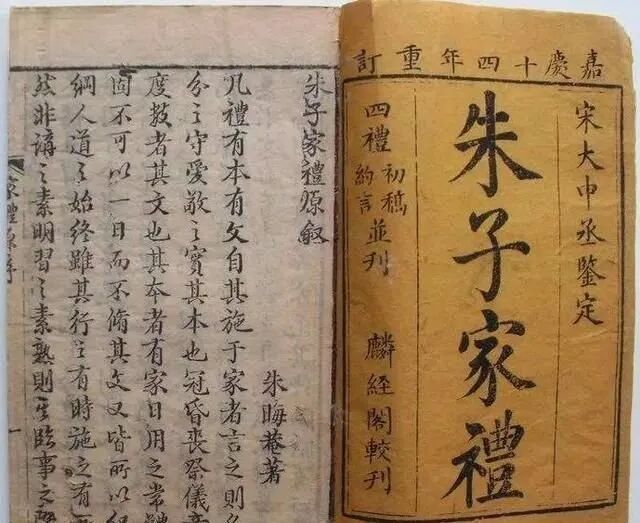 嘉慶十四年重訂
宋大中丞鑒定
朱子家禮
四禮初稿約言並刊
麟經閣較刊
朱子家禮原叙
朱晦菴著
凡禮有本有文自其施于家者言之則名
分之守愛敬之實其本也冠昏喪祭儀章
度數者其文也其本者有家日用之常體
固不可以一日而不脩其文又皆所以紀
綱人道之始終雖其行之有時施之有
然非講之素明習之素熟則其臨事之際
家禮原序
一